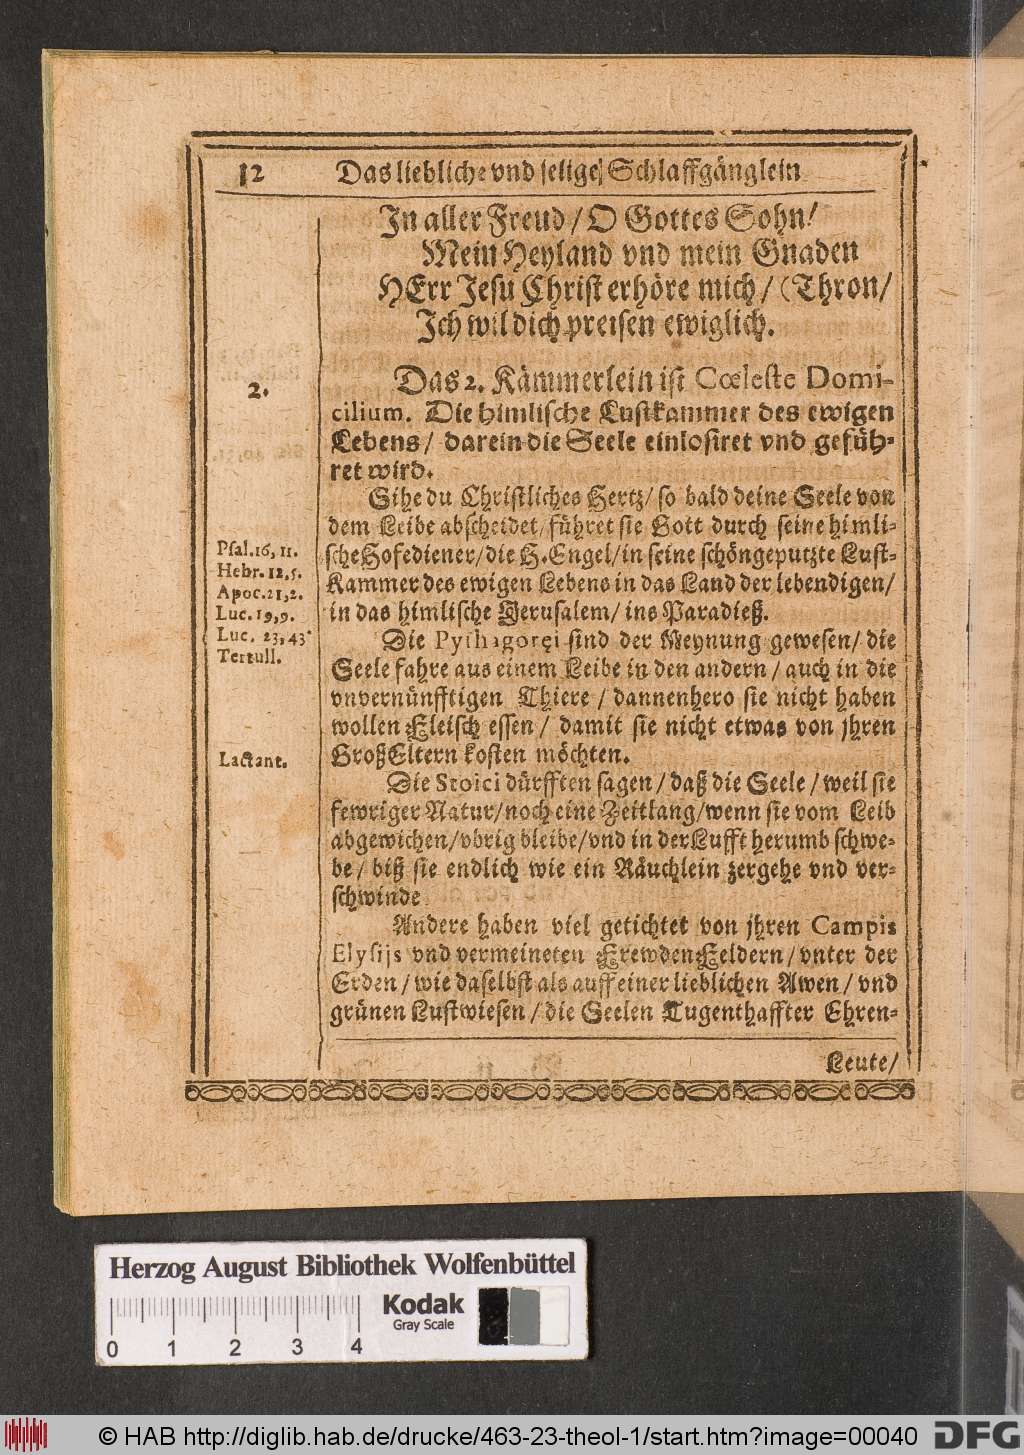 12 Das liebliche vnd selige Schlaffgänglein
In aller Freud / O Gottes Sohn!
Mein Heyland vnd mein Gnaden
HErr Jesu Christ erhöre mich / (Thron /
Ich wil dich preisen ewiglich.
2.
Das 2. Kämmerlein ist Cœleste Domi-
cilium. Die himlische Lustkammer des ewigen
Lebens / darein die Seele einlosiret vnd gefüh-
ret wird.
Sihe du Christliches Hertz / so bald deine Seele von
dem Leibe abscheidet / führet sie Gott durch seine himli-
sche Hofediener / die H. Engel / in seine schöngeputzte Lust-
Kammer des ewigen Lebens in das Land der lebendigen /
in das himlische Jerusalem / ins Paradieß.
Psal. 16, 11.
Hebr. 12, 5.
Apoc. 21, 2.
Luc. 19, 9.
Luc. 23, 43.
Tertull.
Die Pythagoręi sind der Meynung gewesen / die
Seele fahre aus einem Leibe in den andern / auch in die
vnvernünfftigen Thiere / dannenhero sie nicht haben
wollen Fleisch essen / damit sie nicht etwas von jhren
GroßEltern kosten möchten.
Lactant.
Die Stoici dürfften sagen / daß die Seele / weil sie
fewriger Natur / noch eine Zeitlang / wenn sie vom Leib
abgewichen / vbrig bleibe / vnd in der Lufft herumb schwe-
be / biß sie endlich wie ein Räuchlein zergehe vnd ver-
schwinde
Andere haben viel getichtet von jhren Campis
Elysijs vnd vermeineten FrewdenFeldern / vnter der
Erden / wie daselbst als auff einer lieblichen Awen / vnd
grünen Lustwiesen / die Seelen Tugenthaffter Ehren-
Leute /
Herzog August Bibliothek Wolfenbüttel
Kodak
Gray Scale
0 1 2 3 4
© HAB http://diglib.hab.de/drucke/463-23-theol-1/start.htm?image=00040
DFG